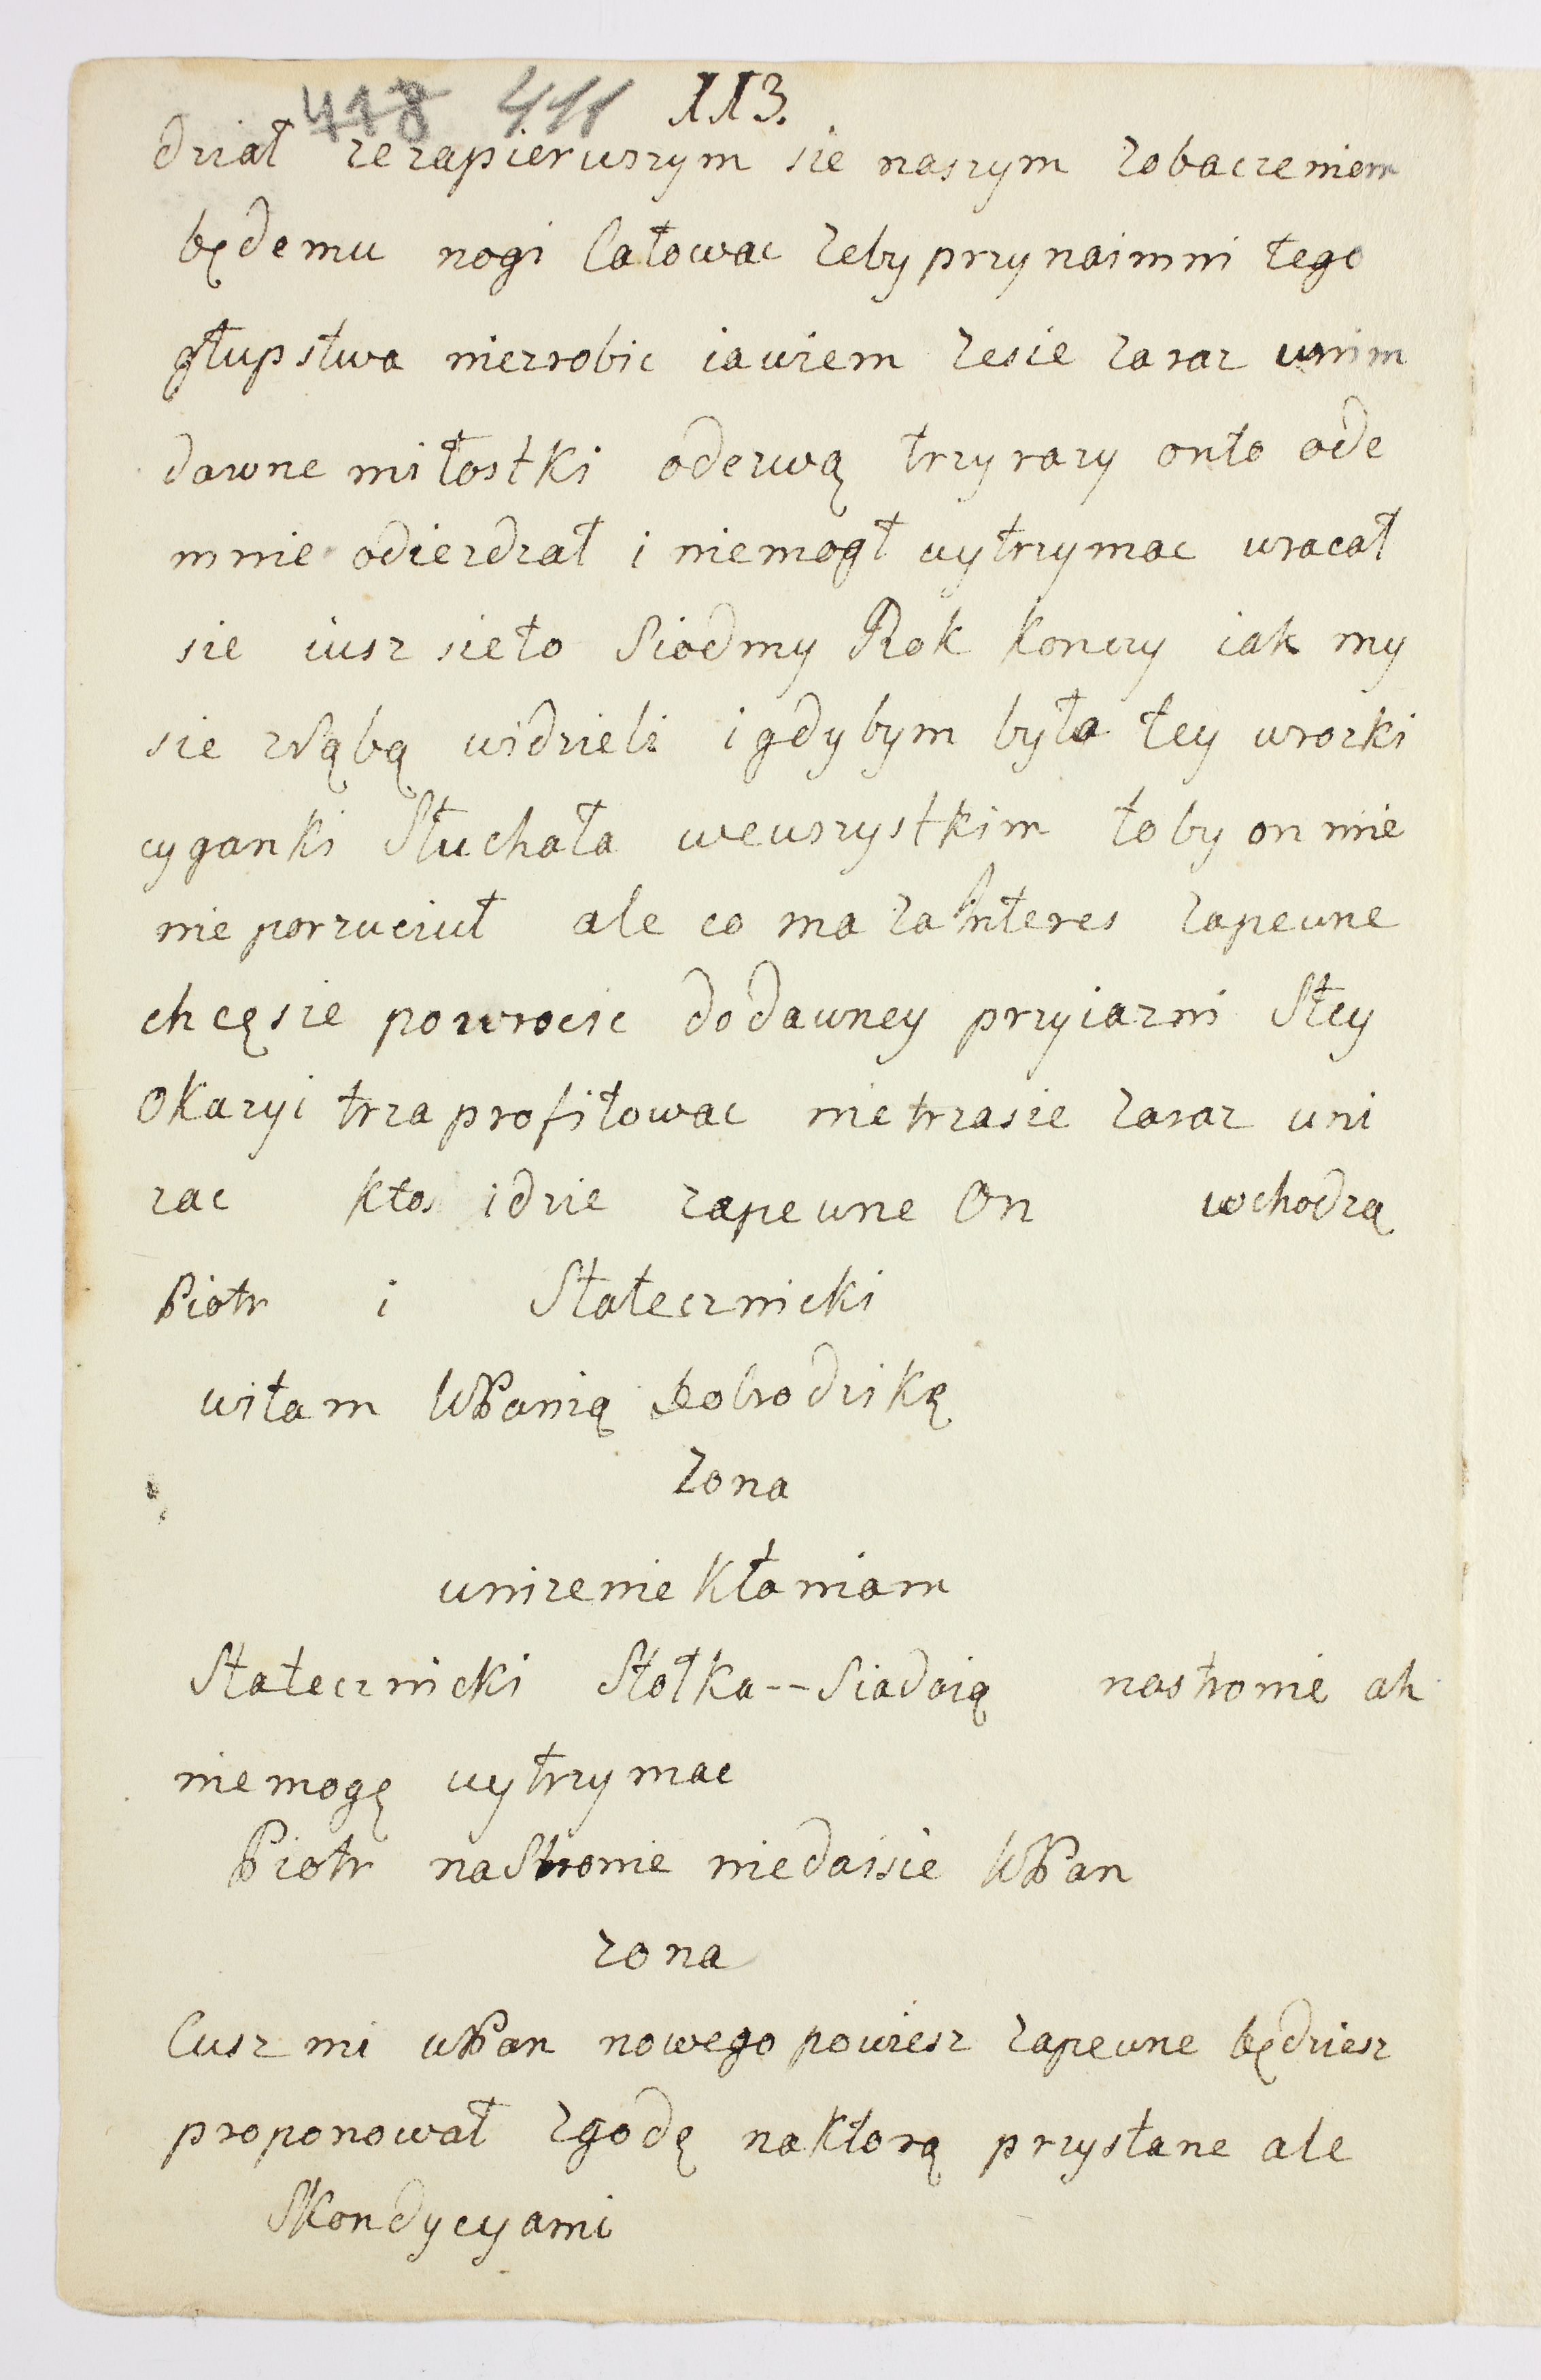 418 411 113.
dział zezapierwszym sie naszym zobaczeniem
będemu nogi całowac zeby przynaimni tego
głupstwa niezrobic iawiem zesie zaraz wnim
dawne miłostki odezwą trzy razy onto ode
mnie odiezdzał i niemogł wytrzymac wracał
sie iusz sieto Siodmy Rok konczy iak my
sie zsąbą widzieli i gdybym była tey wrozki
cyganki Słuchała wewszystkim toby on mie
nie porzuciuł ale co ma za Interes zapewne
chcęsie powrocic dodawney przyiazni Stey
Okazyi trza profitowac nie trzasie zaraz uni
zac ktos idzie zapewne On wchodzą
Piotr i Statecznicki
witam WPanią Dobrodzikę
Zona
unizenie kłaniam
Statecznicki Stołka -- Siadaią nastronie ah
niemogę wytrzymac
Piotr naStronie niedaisie WPan
zona
Cusz mi wPan nowego powiesz zapewne będziesz
proponował zgodę naktorą przystane ale
Skondycyami